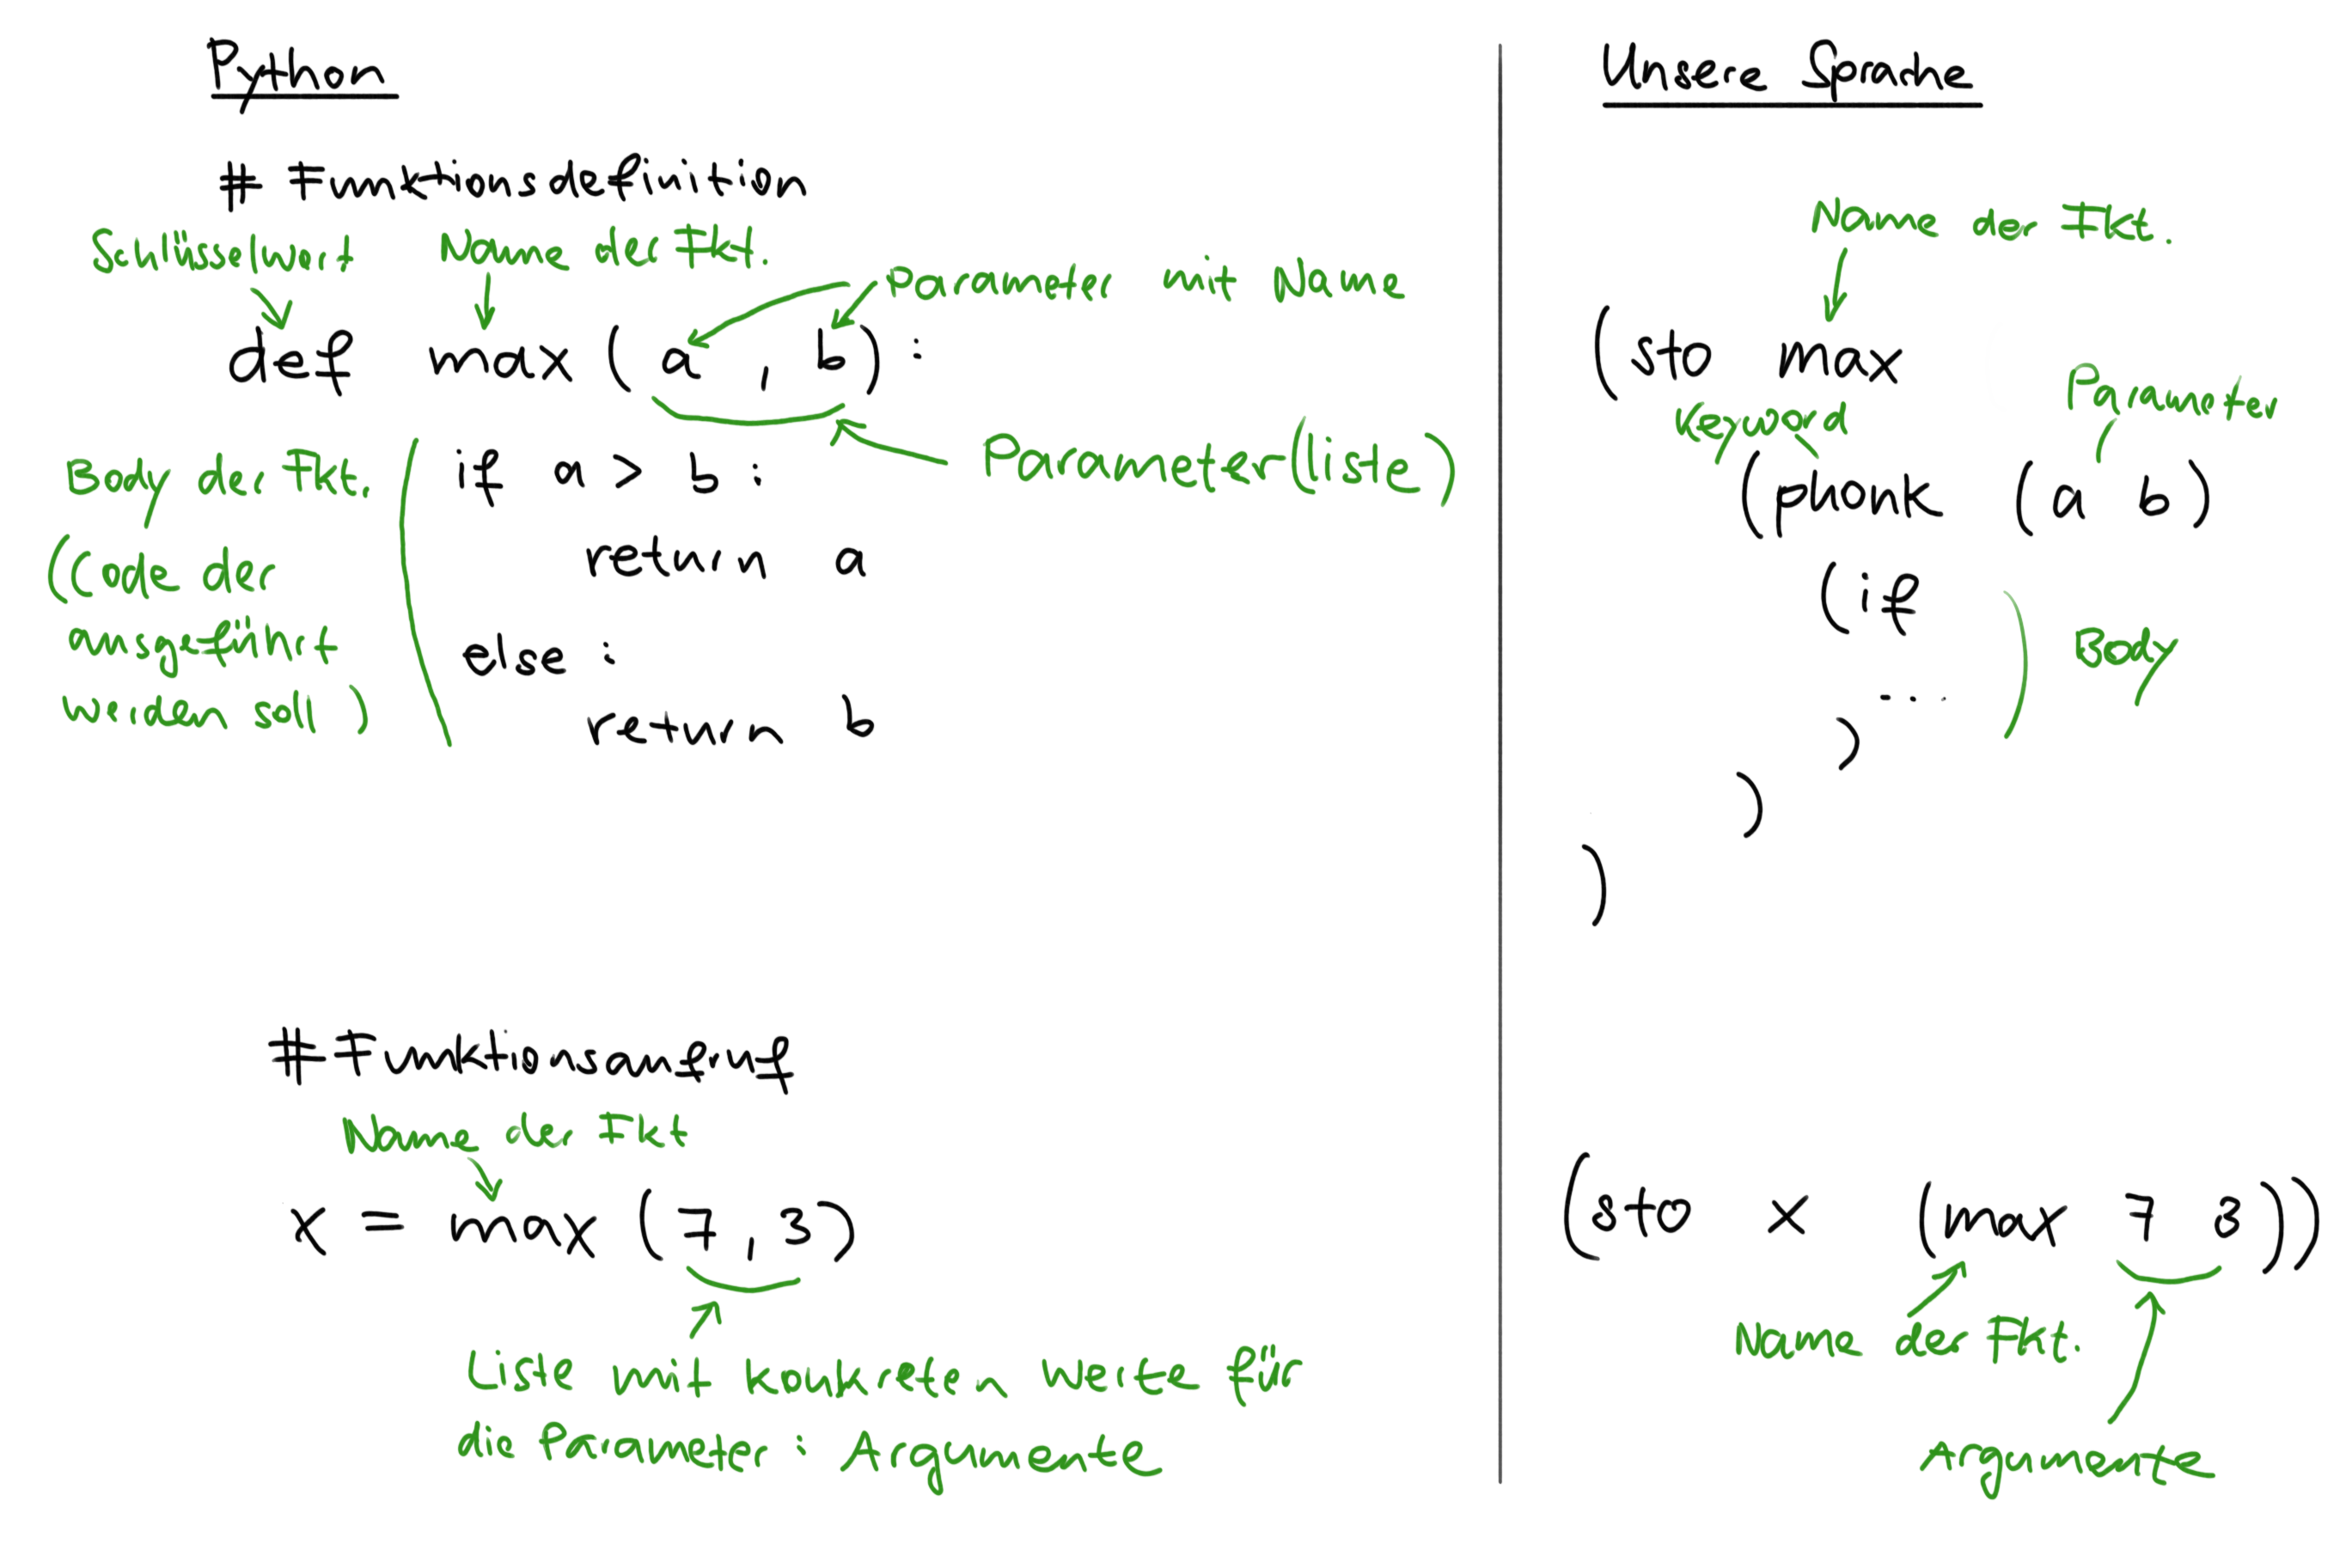 Python
# Funktionsdefinition
Schlüsselwort Name der Fkt.
Parameter mit Name
def max ( a , b ) :
Parameter(liste)
Body der Fkt.
(Code der
ausgeführt
werden soll)
if a > b :
return a
else :
return b
# Funktionsaufruf
Name der Fkt
x = max ( 7 , 3 )
Liste mit konkreten Werte für
die Parameter : Argumente
Unsere Sprache
Name der Fkt.
(sto max
Keyword
Parameter
(phonk (a b)
(if
...
Body
)
)
)
(sto x (max 7 3))
Name der Fkt.
Argumente